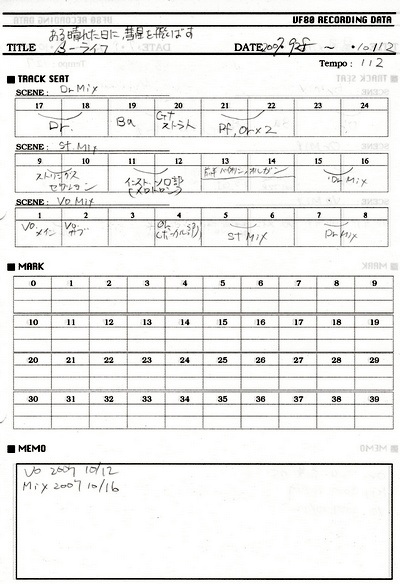 VF80 RECORDING DATA
ある晴れた日に,彗星を飛ばす
TITLE B-ライフ DATE 2007 9/28 ~ 10/12
Tempo: 112
TRACK SEAT
SCENE: Dr Mix
17 18 19 20 21 22 23 24
Dr. Ba Gt ストラト Pf, Or×2
SCENE: St. Mix
9 10 11 12 13 14 15 16
ストリングス セクション インスト.ソロ部 (メロトロン) Dr Mix
SCENE: Vo Mix
1 2 3 4 5 6 7 8
Vo. メイン Vo サブ St Mix Dr Mix
MARK
0 1 2 3 4 5 6 7 8 9
10 11 12 13 14 15 16 17 18 19
20 21 22 23 24 25 26 27 28 29
30 31 32 33 34 35 36 37 38 39
MEMO
Vo 2007 10/12
Mix 2007 10/16